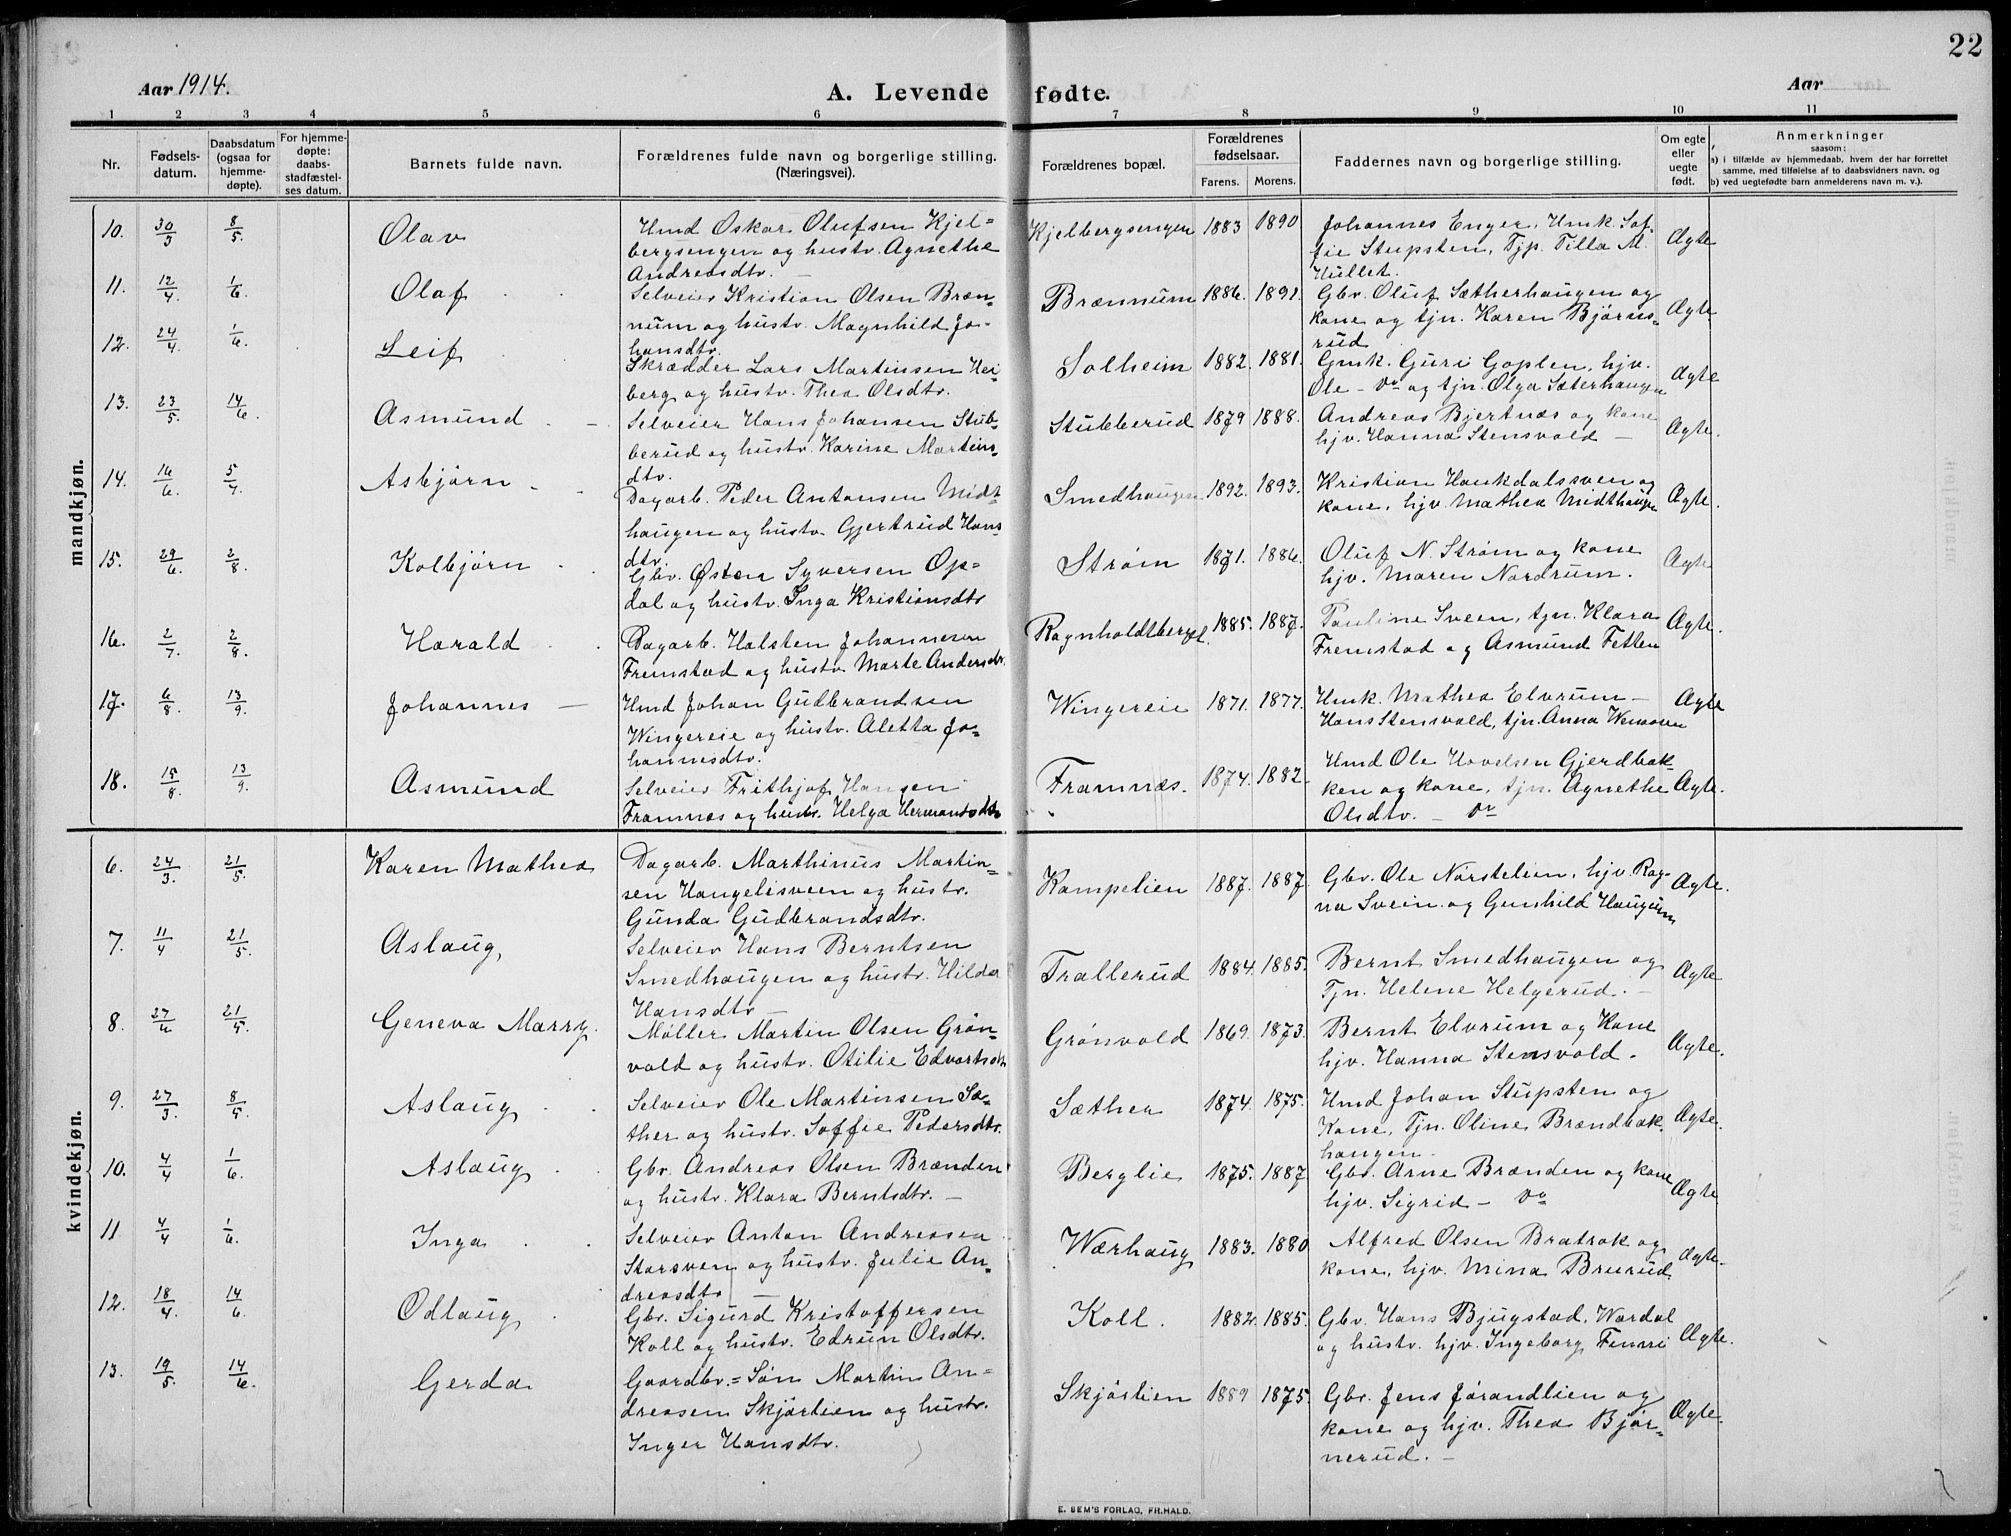 22
Aar 1914.
A. Levende fødte.
Aar
1 2 3 4 5 6 7 8 9 10 11
Nr.
Fødsels-
datum.
Daabsdatum
(ogsaa for
hjemme-
døpte).
For hjemme-
døpte:
daabs-
stadfæstel-
ses datum.
Barnets fulde navn.
Forældrenes fulde navn og borgerlige stilling.
(Næringsvei).
Forældrenes bopæl.
Forældrenes
fødselsaar.
Farens. Morens.
Faddernes navn og borgerlige stilling.
Om egte
eller
uegte
født.
Anmerkninger
saasom:
a) i tilfælde av hjemmedaab, hvem der har forrettet
samme, med tilføielse af to daabsvidners navn, og
b) ved uegtefødte barn anmelderens navn m. v.).
mandkjøn.
10. 30/3 8/5. Olav
Hmd Oskar Olufsen Kjel=
bergsengen og hustr. Agnethe
Andreasdtr. —
Kjelbergsengen 1883 1890
Johannes Enger, Hmk. Sof-
fie Stupsten, Tjp. Tilla M.
Hullet.
Ægte
11. 12/4. 1/6. Olaf
Selveier Kristian Olsen Bræn=
num og hustr. Magnhild Jo-
hansdtr.
Brænnum 1886. 1891.
Gbr. Oluf Sætherhaugen og
kone og tjn. Karen Bjørns=
rud
Ægte
12. 24/4. 1/6. Leif
Skrædder Lars Martinsen Hei-
berg og hustr. Thea Olsdtr.
Solheim 1882. 1881.
Gmk. Guri Goplen, hjv.
Ole — Do og tjn. Olga Sæterhaugen
Ægte
13. 23/5. 14/6. Asmund
Selveier Hans Johansen Stub=
berud og hustr. Karine Martins=
dtr.
Stubberud 1879 1888.
Andreas Bjertnæs og kone
hjv. Hanna Stensvold —
Ægte.
14. 16/6. 5/7. Asbjørn
Dagarb. Peder Antonsen Midt
haugen og hustr. Gjertrud Hans
dtr.
Smedhaugen 1892. 1893.
Kristian Haukdalssveen og
kone, hjv. Mathea Midthaugen
Ægte.
15. 29/6. 2/8. Kolbjørn
Gbr. Østen Syversen Op=
dal og hustr. Inga Kristiansdtr
Strøm 1871. 1886.
Oluf N. Strøm og kone
hjv. Maren Nordrum.
Ægte
16. 2/7. 2/8. Harald
Dagarb. Halsten Johannesen
Fremstad og hustr. Marte Andersdtr.
Ragnholdtberget. 1885. 1887.
Pauline Sveen, tjn. Klara
Fremstad og Asmund Fetten
Ægte.
17. 6/8. 13/9. Johannes —
Hmd Johan Gudbrandsen
Wingereie og hustr. Aletta Jo=
hannesdtr.
Wingereie 1871. 1877.
Hmk. Mathea Elvrum —
Hans Stensvold, tjn. Anna
Ægte
18. 15/8. 13/9. Asmund
Selveier Frithjof Hansen
Framnæs og hustr. Helga Hermansdtr
Framnæs. 1874. 1882.
Hmd Ole Hovelsen Gjerdbak-
ken og kone, tjn. Agnethe
Olsdtr. — Do
Ægte.
kvindekjøn.
6. 24/3. 21/5. Karen Mathea
Dagarb. Marthinus Martin=
sen Hangelisveen og hustr.
Gunda Gudbrandsdtr.
Kampelien 1887. 1887
Gbr. Ole Nørstelien, hjv. Rag-
na Svein og Gunhild Haugum
Ægte.
7. 11/4 21/5. Aslaug,
Selveier Hans Berntsen
Smedhaugen og hustr. Hilda
Hansdtr —
Trallerud 1884. 1885.
Bernt Smedhaugen og
Tjn. Helene Helgerud. —
Ægte
8. 27/4 21/5. Geneva Marry.
Møller Martin Olsen Grøn=
vold og hustr. Otilie Edvartsdtr
Grønvold 1869. 1873.
Bernt Elvrum og Kone
hjv. Hanna Stensvold.
Ægte.
9. 27/3. 8/5. Aslaug
Selveier Ole Martinsen Sæ=
ther og hustr. Soffie Pedersdtr.
Sæther 1874. 1875.
Hmd Johan Stupsten og
Kone, Tjn. Oline Brændbak
haugen.
Ægte.
10. 4/4 1/6. Aslaug
Gbr. Andreas Olsen Brænden
og hustr. Klara Berntsdtr. —
Berglie 1875. 1887
Gbr. Arne Brænden og kone
hjv. Sigrid — Do
Ægte
11 4/4 1/6. Inga
Selveier Anton Andreasen
Storsveen og hustr. Julie An=
dreasdtr —
Wærhaug 1883. 1880
Alfred Olsen Bratrok og
kone, hjv. Mina Bruerud
Ægte.
12. 18/4. 14/6. Odlaug
Gbr. Sigurd Kristoffersen
Koll og hustr. Edrun Olsdtr.
Koll. 1882. 1885.
Gbr. Hans Bjugstad, Wardal
og hustr. hjv. Ingeborg Finni
Ægte.
13. 19/5. 14/6. Gerda
Gaardbr.= Søn Martin An=
dreasen Skjøstien og hustr.
Inger Hansdtr.
Skjøstien 1889 1875.
Gbr. Jens Jørandlien og
kone og hjv. Thea Bjør=
nerud. —
Ægte.
E. SEM'S FORLAG, FR.HALD.